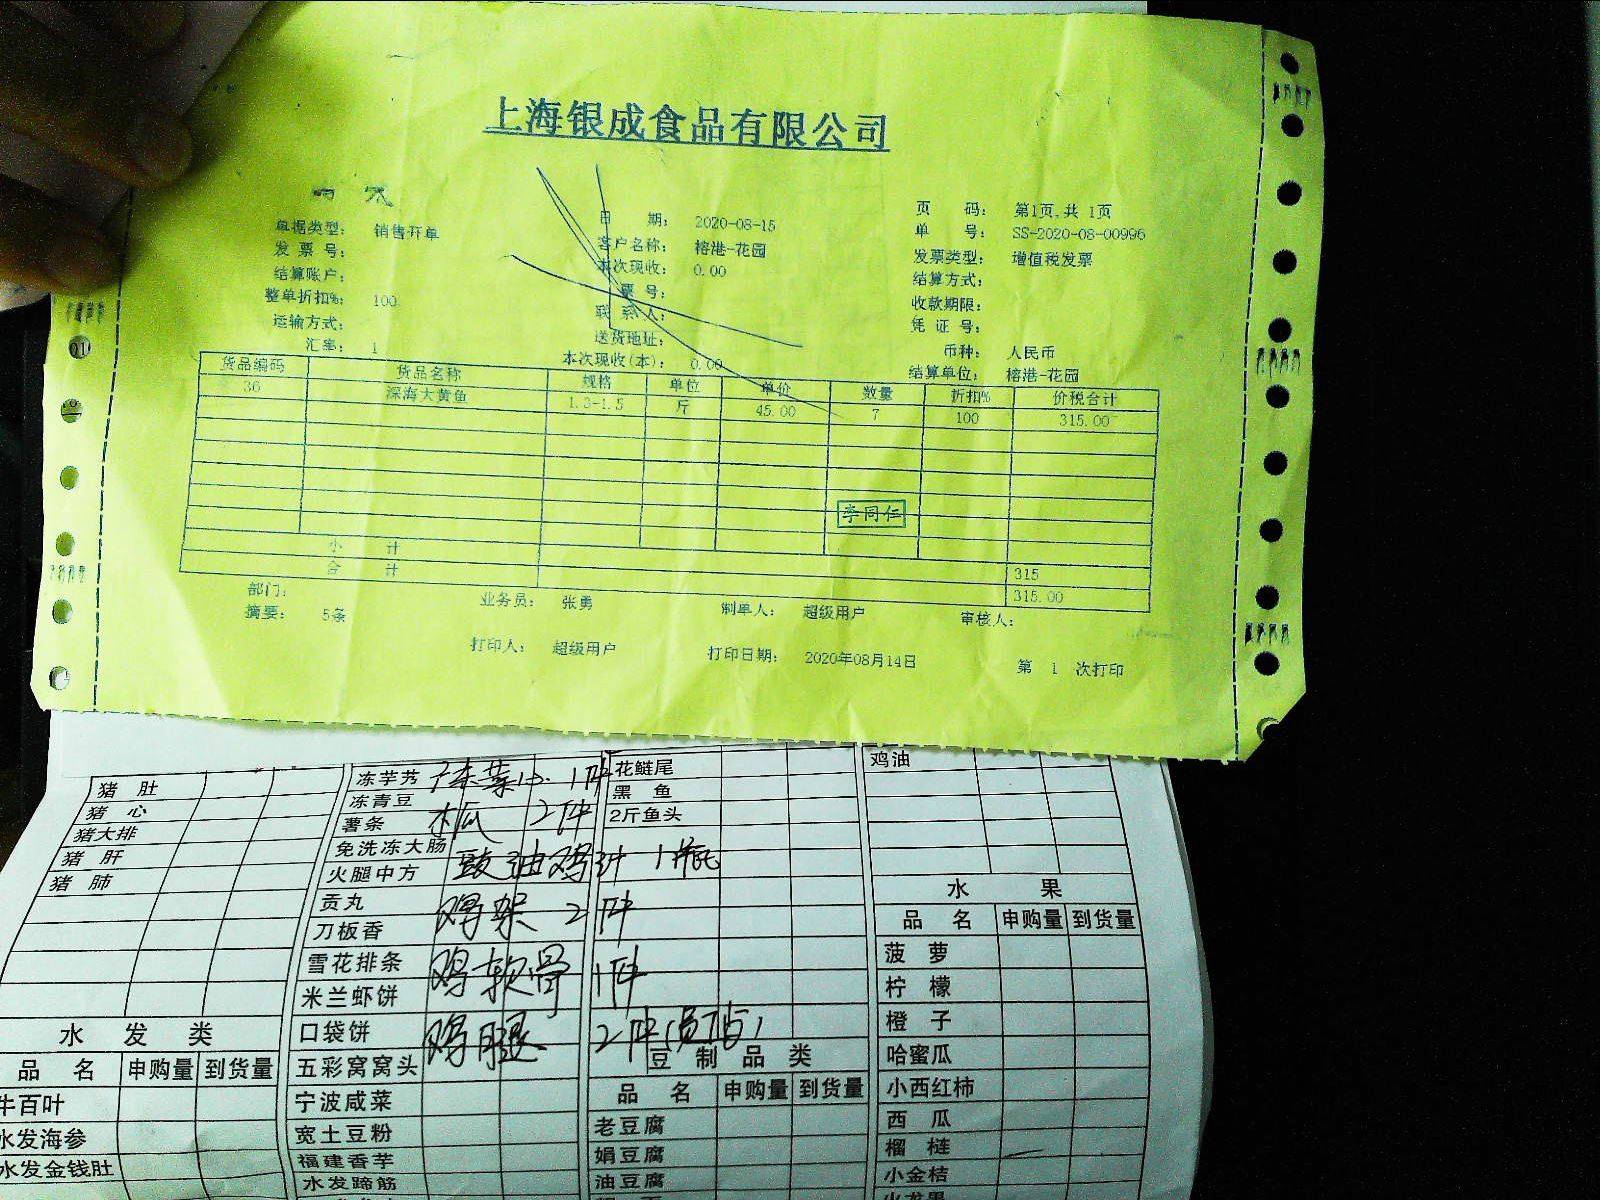 上海银成食品有限公司
单据类型: 销售开单 日 期: 2020-08-15 页 码: 第1页,共 1页
发 票 号: 客户名称: 榕港-花园 单 号: SS-2020-08-00996
结算账户: 本次现收: 0.00 发票类型: 增值税发票
整单折扣%: 100 票号: 结算方式:
运输方式: 联 系 人: 收款期限:
汇率: 1 送货地址: 凭 证 号:
本次现收(本): 0.00 币种: 人民币
结算单位: 榕港-花园
货品编码 货品名称 规格 单位 单价 数量 折扣% 价税合计
36 深海大黄鱼 1.3-1.5 斤 45.00 7 100 315.00
李同仁
小 计 315
合 计 315.00
部门: 业务员: 张勇 制单人: 超级用户 审核人:
摘要: 5条
打印人: 超级用户 打印日期: 2020年08月14日 第 1 次打印
猪 肚
猪 心
猪大排
猪 肝
猪 肺
水 发 类
品 名 申购量 到货量
牛百叶
水发海参
水发金钱肚
冻芋艿 1件
冻青豆
薯条 木瓜 2件
免洗冻大肠
火腿中方 豉油鸡汁 1瓶
贡丸
刀板香 鸡架 2件
雪花排条
米兰虾饼 鸡软骨 1件
口袋饼 鸡腿 2件
五彩窝窝头
宁波咸菜
宽土豆粉
福建香芋
水发蹄筋
花鲢尾
黑 鱼
2斤鱼头
豆 制 品 类
品 名 申购量 到货量
老豆腐
娟豆腐
油豆腐
鸡油
水 果
品 名 申购量 到货量
菠 萝
柠 檬
橙 子
哈蜜瓜
小西红柿
西 瓜
榴 梿
小金桔
火龙果